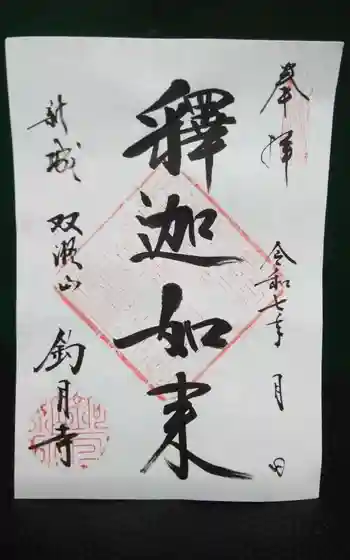 奉拝
令和七年 月 日
釋迦如来
新城 双瀬山
釣月寺